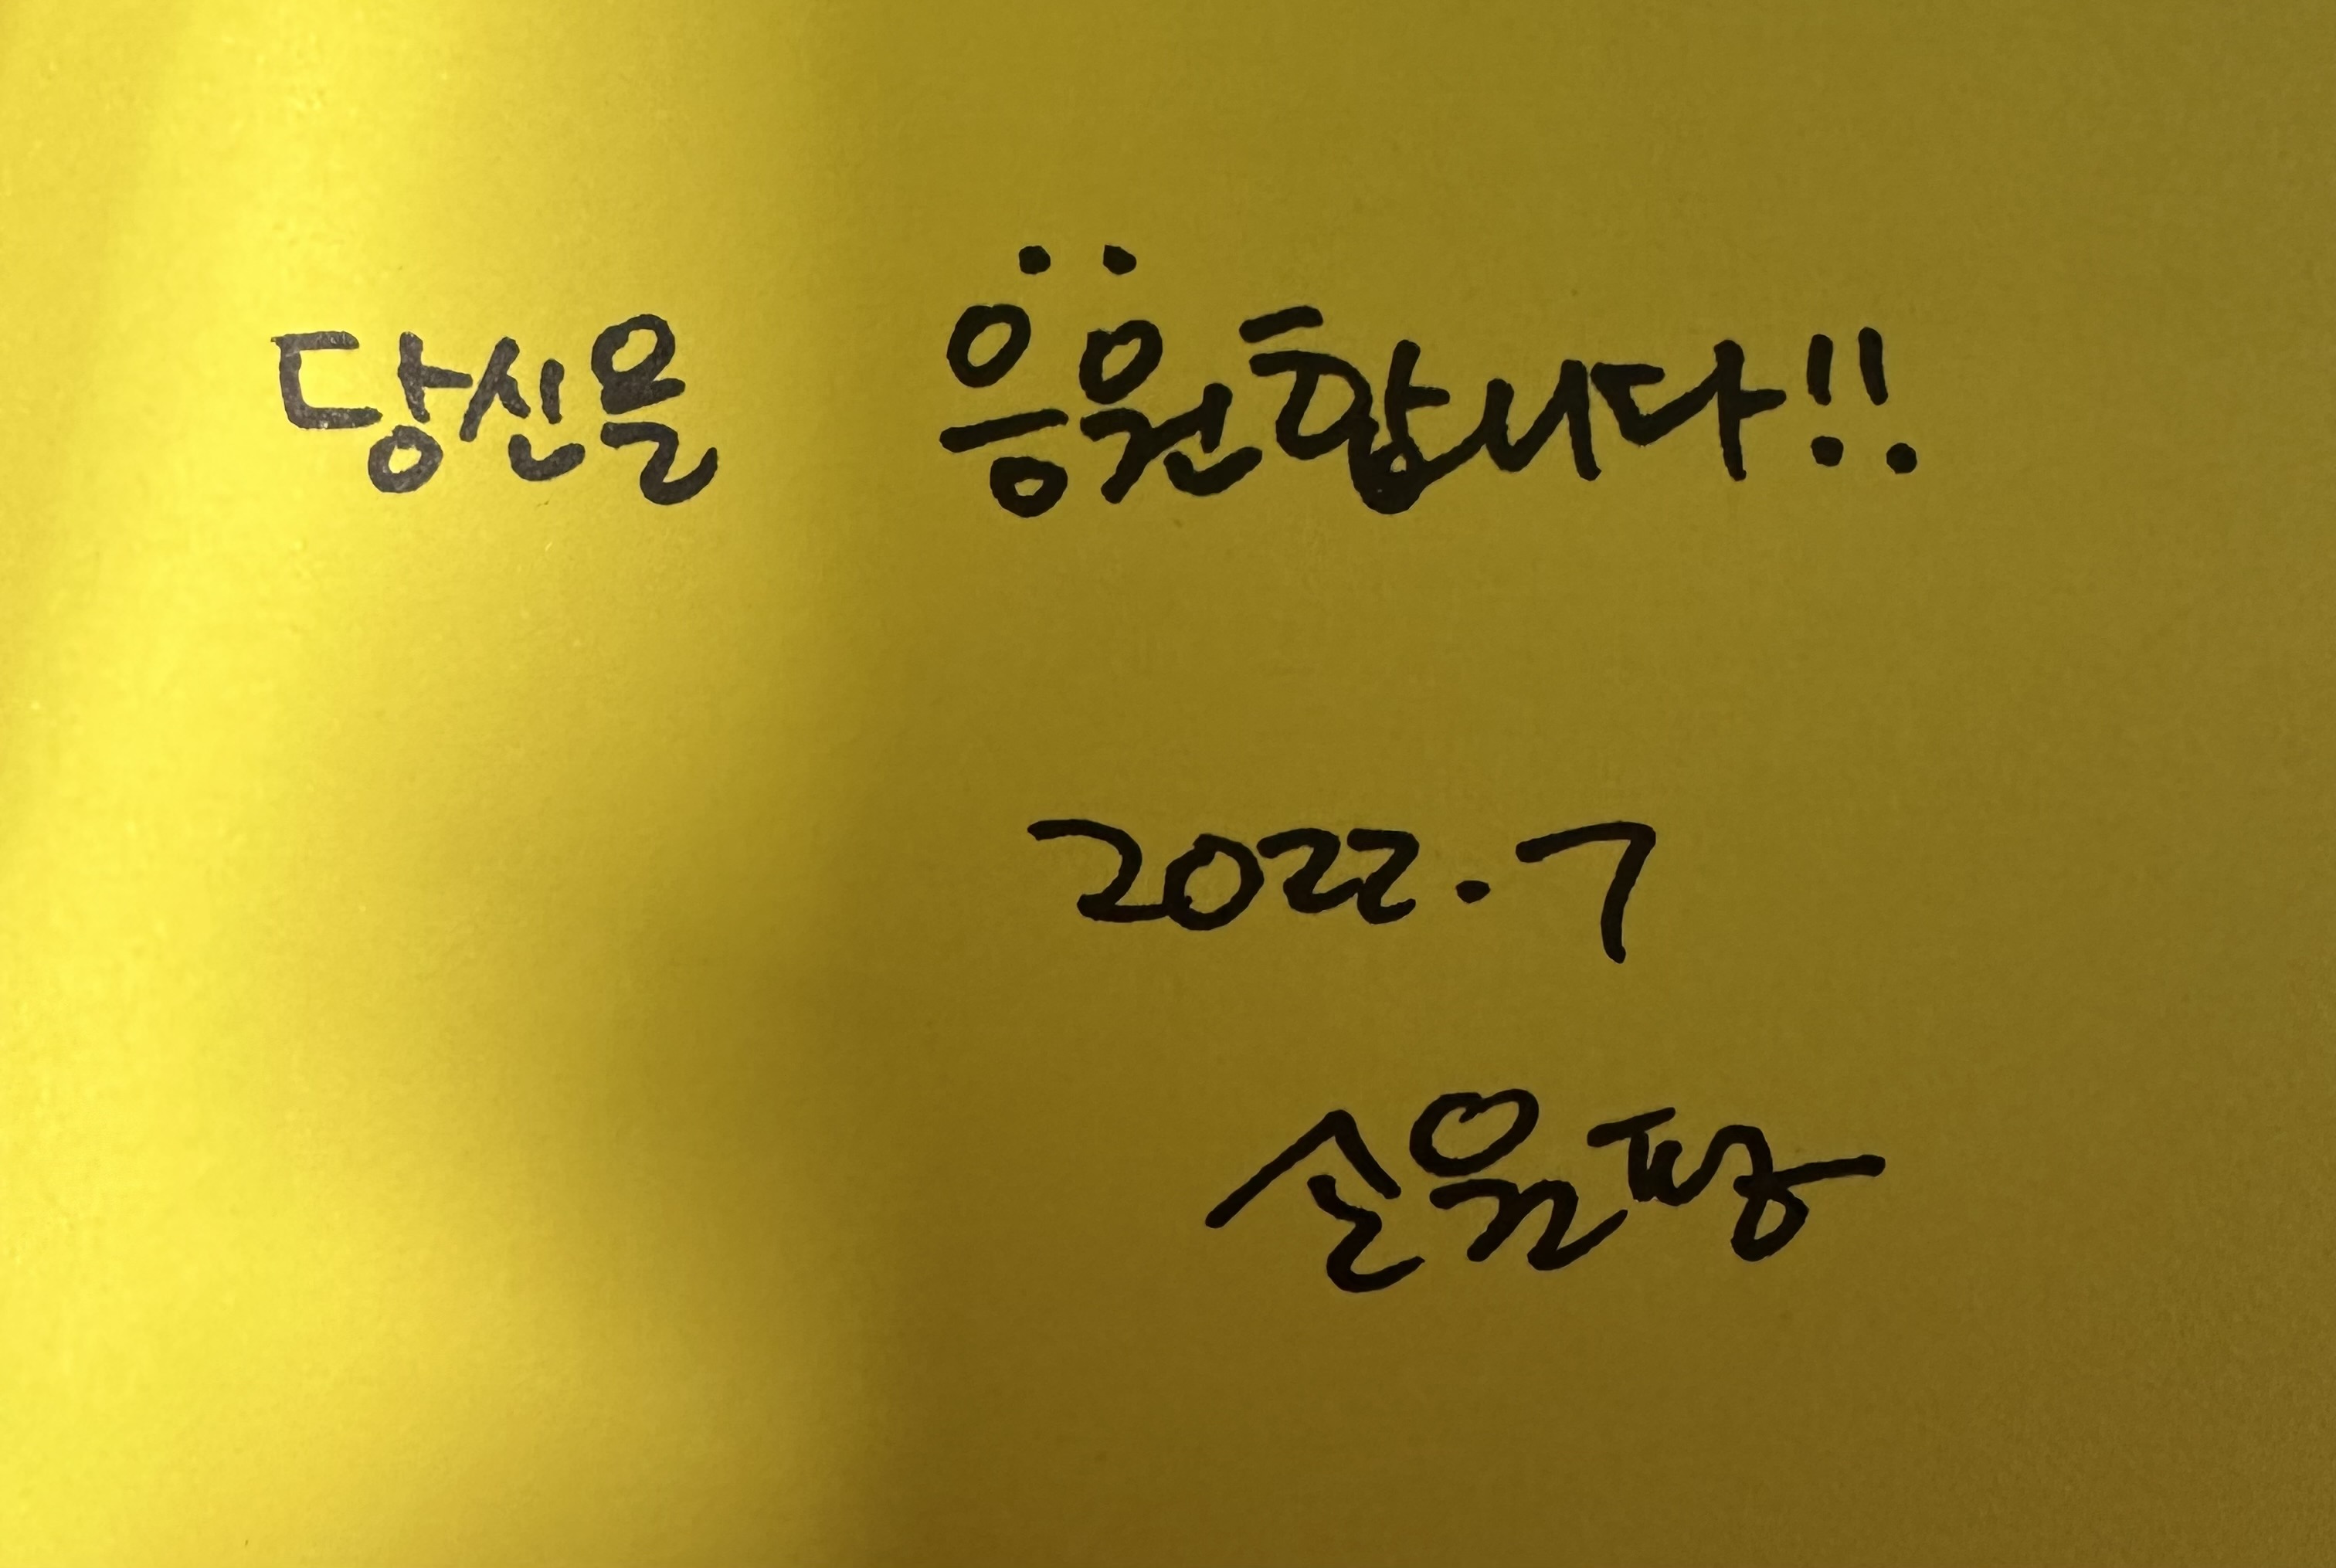 당신을 응원합니다!!
2022.7